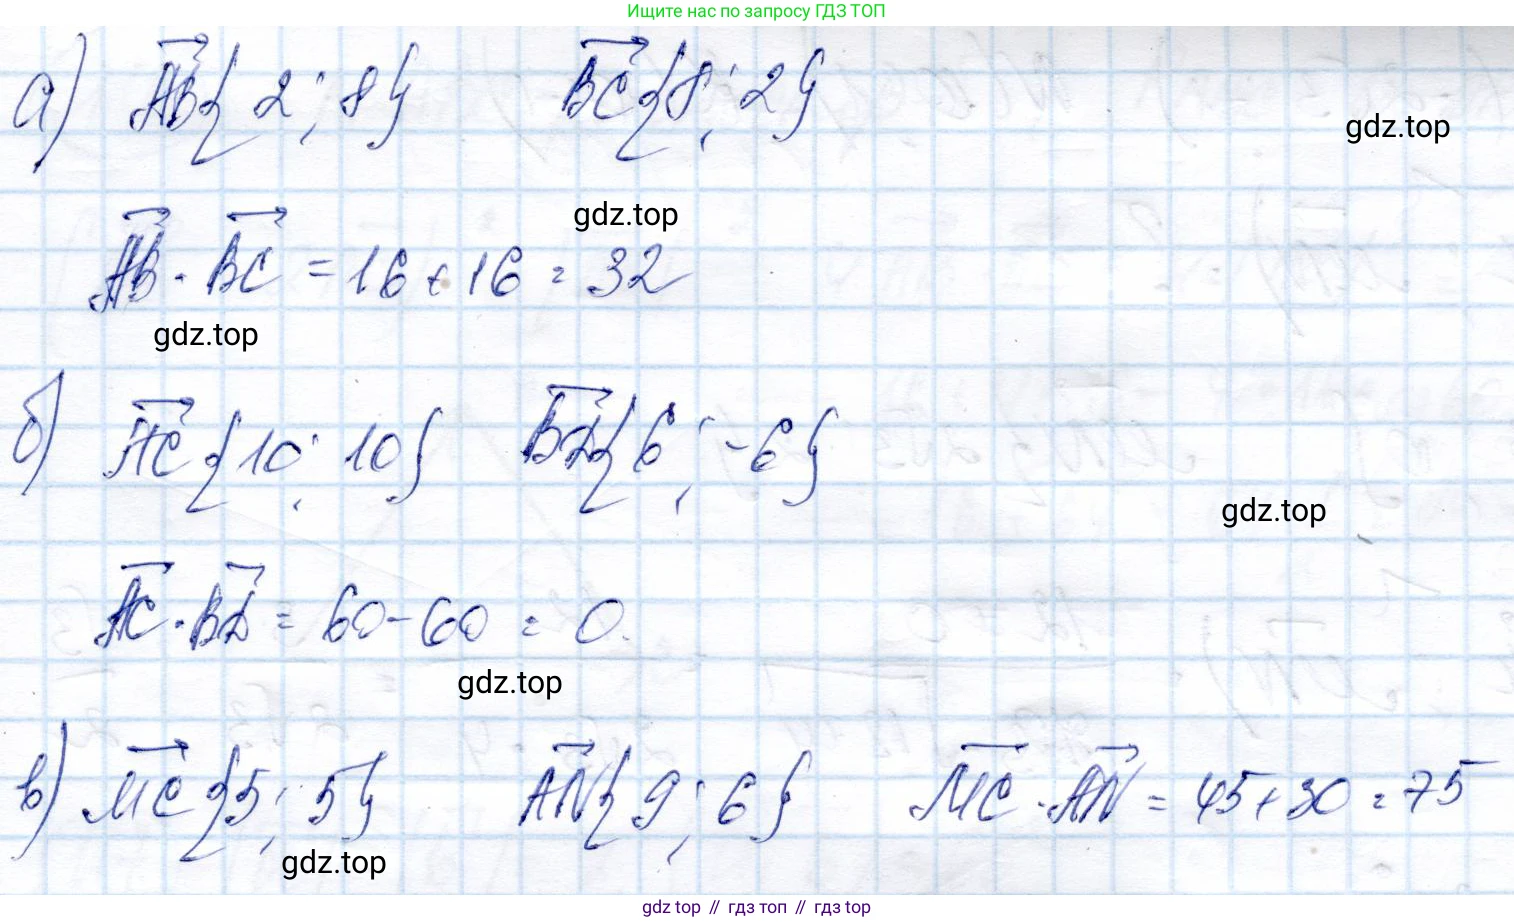 Ищите нас по запросу ГДЗ ТОП
а) AB{2; 8} BC{8; 2}
gdz.top
gdz.top
AB · BC = 16 + 16 = 32
gdz.top
б) AC{10; 10} BD{6; -6}
gdz.top
AC · BD = 60 - 60 = 0.
gdz.top
в) MC{5; 5} AN{9; 6} MC · AN = 45 + 30 = 75
gdz.top
gdz top // гдз топ // гдз top